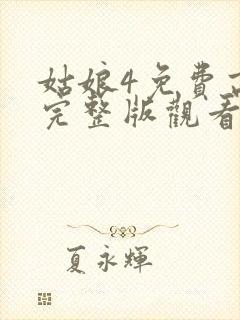 姑娘4免費高
完整版觀看
夏永輝